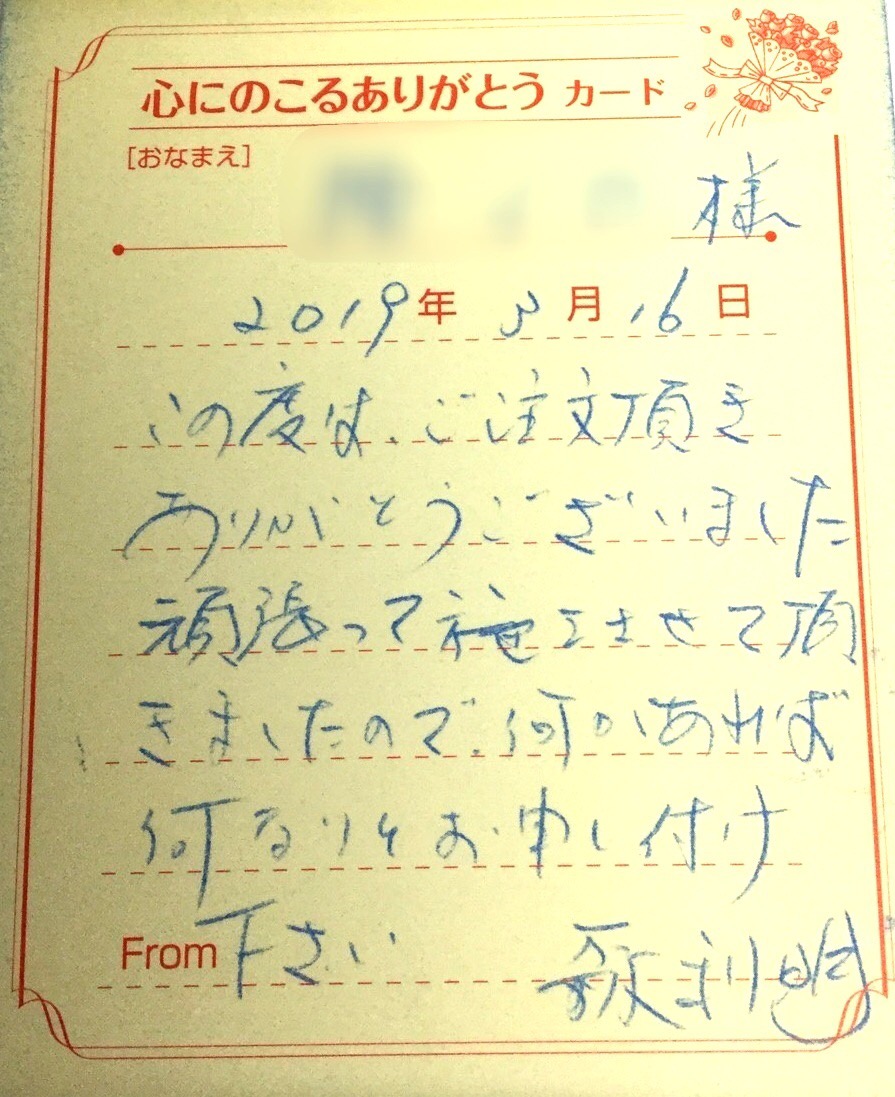 心にのこるありがとう カード
[おなまえ]
様
2019年 3月 16日
この度は、ご注文頂き
ありがとうございました
頑張って施工させて頂
きましたので、何かあれば
何なりとお申し付け
From 下さい